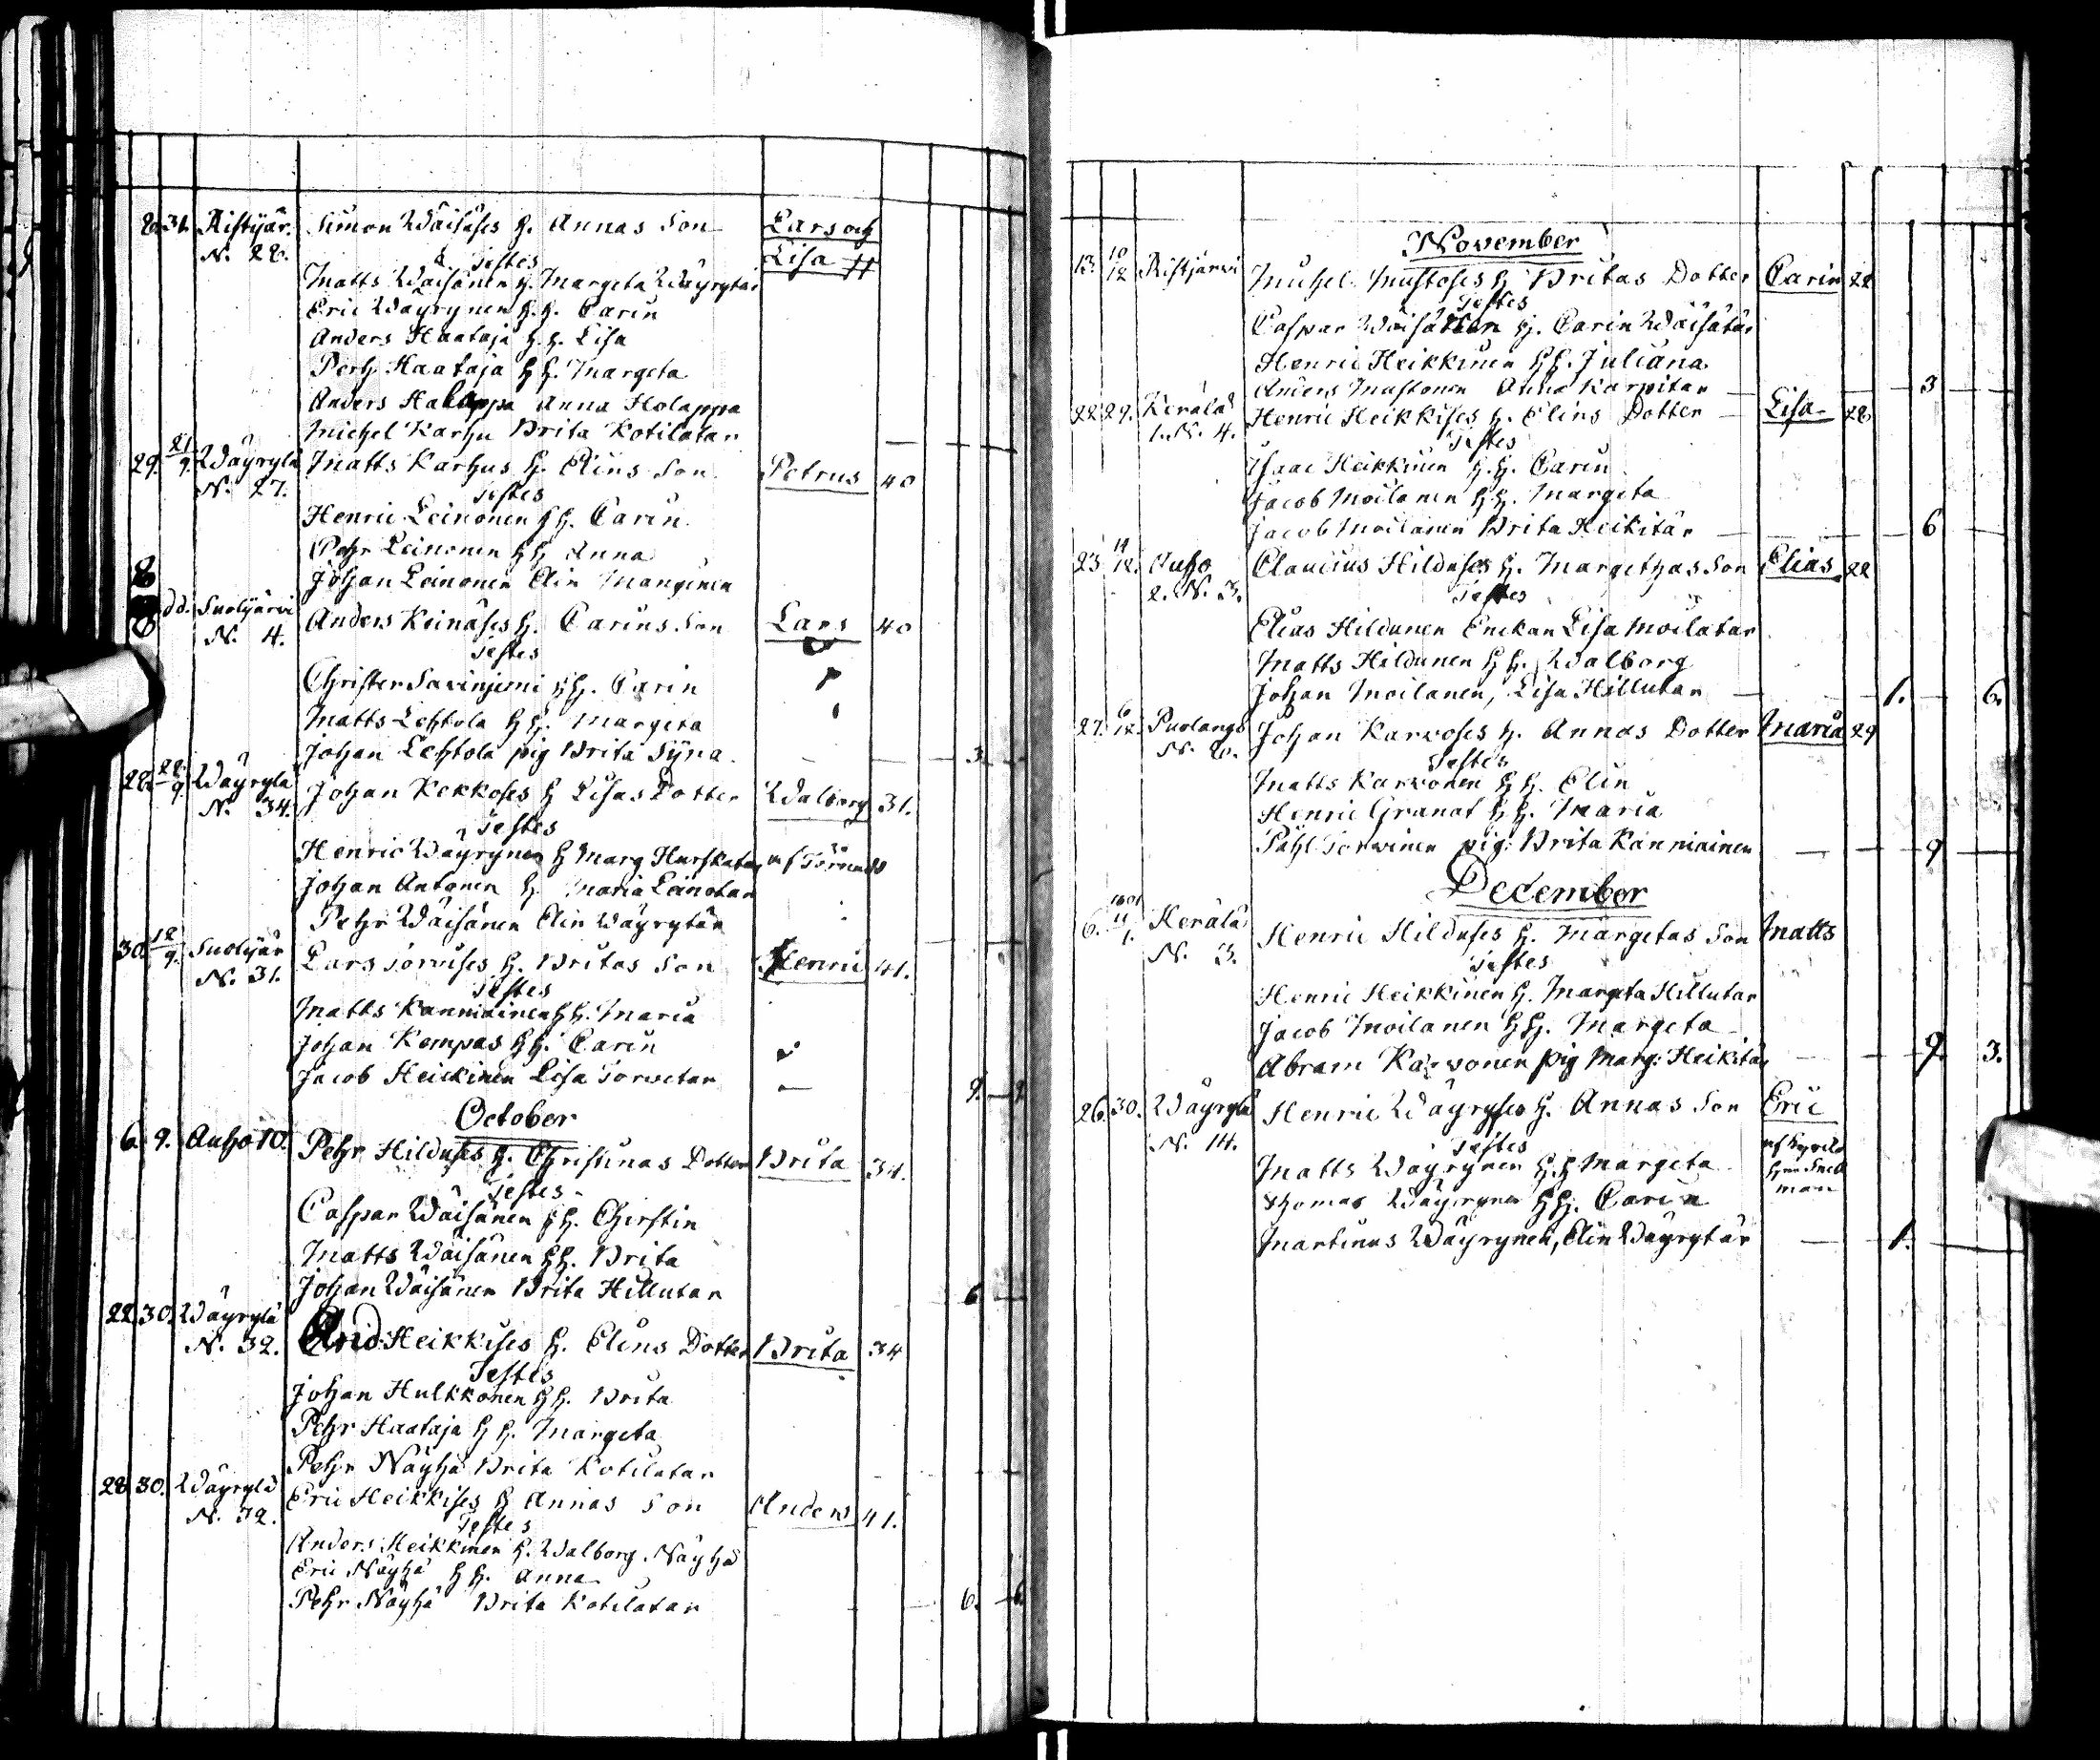 31. Ristijär. Simon Wäisäses h. Annas Son Lars och
N. 22. Testes Lisa
Matts Wäisänen h. Margeta Wäyrytär
Eric Wäyrynen h.h. Carin
Anders Haataja h.h. Lisa
Pehr Haataja h h. Margeta
Anders Holappa Anna Holappa
Michel Karhu Brita Kotilatar
29. 21/9. Wäyrylä Matts Karhus h. Elins Son Petrus 40
N. 27. Testes
Henric Leinonen h h. Carin
Pehr Leinonen h h Anna
Johan Leinonen Elin Manginen
dd. Suolijärvi Anders Keinäses h. Carins Son Lars 40
N. 4. Testes
Christer Savinjemi h h. Carin
Matts Lehtola h h. Margeta
Johan Lehtola pig Brita Syna 3
28 22/9 Wäyrylä Johan Kekkoses h Lisas Dotter Walborg 31.
N. 34. Testes
Henric Wäyrynen h Marg Hurskatar
Johan Antonen h. Maria Leinotar
Pehr Wäisänen Elin Wäyrytär
30. 12/9. Suolijär Lars Torvises h. Britas Son Henric 41.
N. 31. Testes
Matts Kanniainen h h. Maria
Johan Kempas h h. Carin
Jacob Heickinen Lisa Torvetar 9.
October
6. 9. Auho 10. Pehr Hilduses h. Christinas Dotter Brita 34.
Testes
Caspar Wäisänen h h. Chirstin
Matts Wäisänen h h. Brita
Johan Wäisänen Brita Hillutar 6
22 30. Wäyrylä And. Heikkises h. Elins Dotter Brita 34
N. 32. Testes
Johan Hulkkonen h h. Brita
Pehr Haataja h h. Margeta
Pehr Näyhä Brita Kotilatar
28 30. Wäyrylä Eric Heikkises h Annas Son Anders 41.
N. 32. Testes
Anders Heikkinen h. Walborg Näyhä
Eric Näyhä h h. Anna
Pehr Näyhä Brita Kotilatar 6.
November
13. 10/12 Ristjärvi Michel Mustoses h Britas Dotter Carin 22
Testes
Caspar Wäisänen h. Carin Wäisätär
Henric Heikkinen h h. Juliana
Anders Mustonen Anna Karpitar 3
22 29. Kerälä Henric Heikkises h. Elins Dotter Lisa 28
1. N. 4. Testes
Isaac Heikkinen h.h. Carin
Jacob Moilanen h h. Margeta
Jacob Moilanen Brita Heikitär 6
23 14/12. Auho Claudius Hilduses h. Margethas Son Elias 22
2. N. 3. Testes
Elias Hildunen Enckan Lisa Moilatar
Matts Hildunen h h. Walborg
Johan Moilanen, Lisa Hillutar 1. 6.
27. 6/12. Puolango Johan Karvoses h. Annas Dotter Maria 29
N. 20. Testes
Matts Karvonen h h. Elin
Henric Granat h h. Maria
Påhl Torvinen pig. Brita Kanniainen 9
December
6. 1801 11/1. Kerälä Henric Hilduses h. Margetas Son Matts
N. 3. Testes
Henric Heikkinen h. Margeta Hillutar
Jacob Moilanen h h. Margeta
Abram Karvonen pig Marg: Heikitär 9. 3.
26. 30. Wäyrylä Henric Wäyryses h. Annas Son Eric
N. 14. Testes
Matts Wäyrynen h.h Margeta
Thomas Wäyrynen h h. Carin man
Martinus Wäyrynen, Elin Wäyrytär 1.